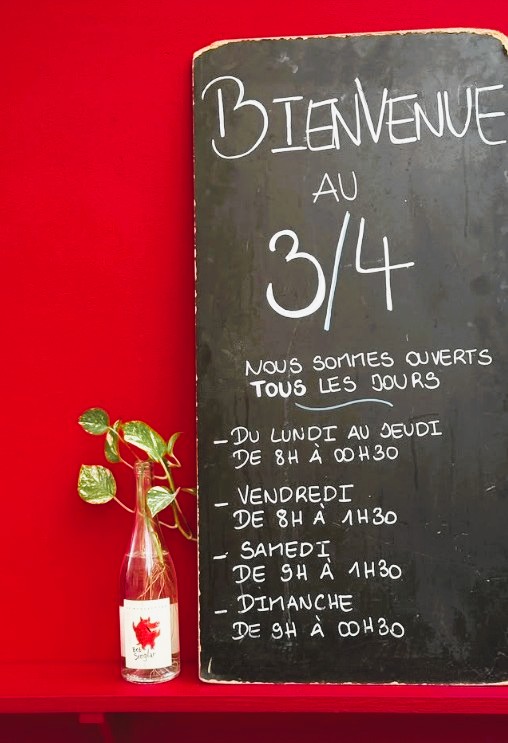 BIENVENUE
AU
3/4
NOUS SOMMES OUVERTS
TOUS LES JOURS
- DU LUNDI AU JEUDI
DE 8H À 00H30
- VENDREDI
DE 8H À 1H30
- SAMEDI
DE 9H À 1H30
- DIMANCHE
DE 9H À 00H30